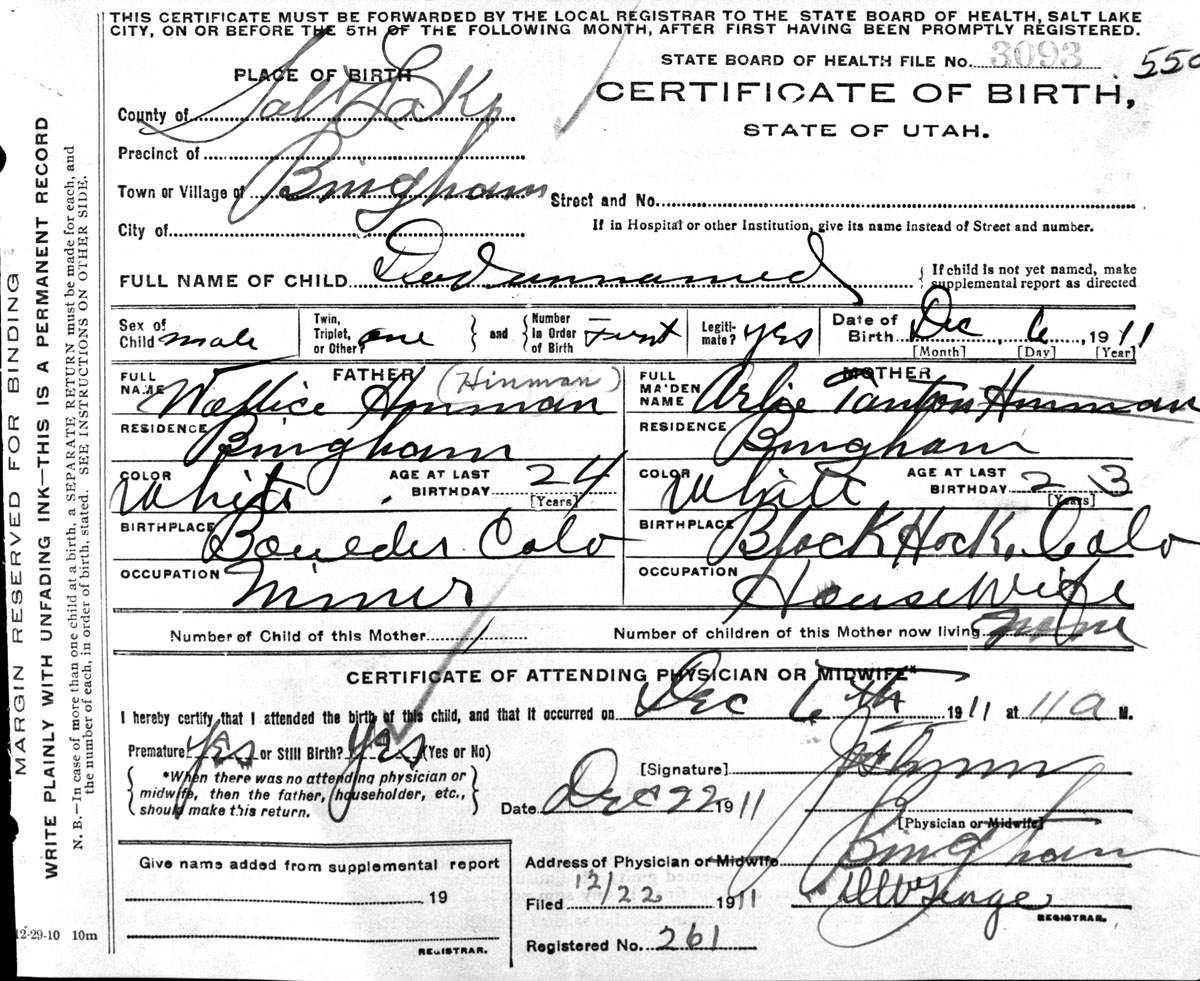 THIS CERTIFICATE MUST BE FORWARDED BY THE LOCAL REGISTRAR TO THE STATE BOARD OF HEALTH, SALT LAKE
CITY, ON OR BEFORE THE 5TH OF THE FOLLOWING MONTH, AFTER FIRST HAVING BEEN PROMPTLY REGISTERED.
STATE BOARD OF HEALTH FILE No. 3093
PLACE OF BIRTH
CERTIFICATE OF BIRTH,
STATE OF UTAH.
County of Salt Lake
Precinct of
Town or Village of Bingham
Street and No.
City of
If in Hospital or other Institution, give its name instead of Street and number.
FULL NAME OF CHILD unnamed
{ If child is not yet named, make
supplemental report as directed
Sex of Child male
Twin, Triplet, or Other? one } and { Number in Order of Birth First
Legiti-mate? yes
Date of Birth Dec 6, 1911
[Month] [Day] [Year]
FATHER (Hinman)
MOTHER
FULL NAME Wallice Hinman
FULL MA'DEN NAME Arlie Tanton Hinman
RESIDENCE Bingham
RESIDENCE Bingham
COLOR White AGE AT LAST BIRTHDAY 24 [Years]
COLOR White AGE AT LAST BIRTHDAY 23 [Years]
BIRTHPLACE Boulder Colo
BIRTHPLACE Black Hock, Colo
OCCUPATION Miner
OCCUPATION HouseWife
Number of Child of this Mother 1
Number of children of this Mother now living none
CERTIFICATE OF ATTENDING PHYSICIAN OR MIDWIFE*
I hereby certify that I attended the birth of this child, and that it occurred on Dec 6th 1911 at 11 a M.
Premature yes or Still Birth? yes (Yes or No)
{ *When there was no attending physician or
midwife, then the father, householder, etc.,
should make this return. }
[Signature]
Date Dec 22 1911
[Physician or Midwife]
Address of Physician or Midwife Bingham
Filed 12/22 1911
REGISTRAR.
Registered No. 261
Give name added from supplemental report
19
REGISTRAR.
12-29-10 10m
MARGIN RESERVED FOR BINDING
WRITE PLAINLY WITH UNFADING INK—THIS IS A PERMANENT RECORD
N. B.—In case of more than one child at a birth, a SEPARATE RETURN must be made for each, and
the number of each, in order of birth, stated. SEE INSTRUCTIONS ON OTHER SIDE.